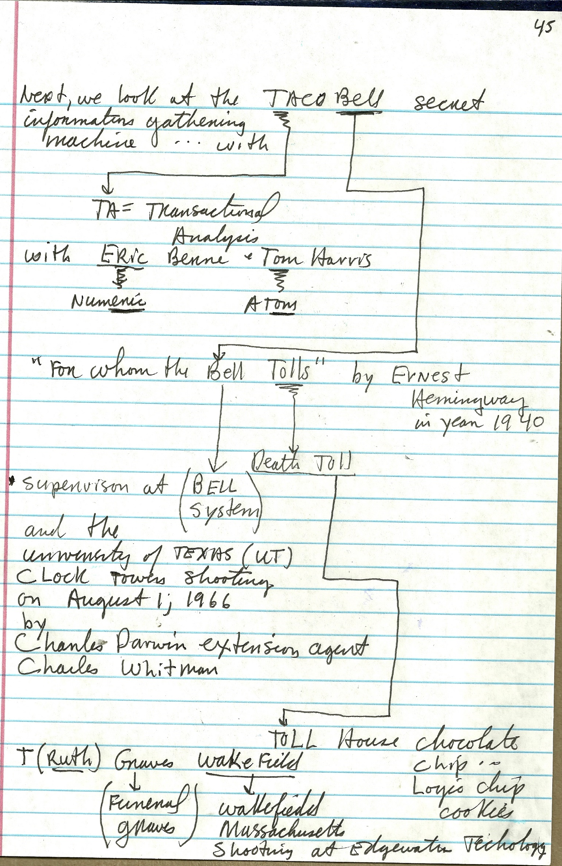 45
Next, we look at the TACO Bell secret
information gathening
machine ... with
TA = Transactional
Analysis
with ERic Benne + Tom Harris
Numenic ATom
"Fon whom the Bell Tolls" by ERNest
Hemingway
in yean 1940
Death Toll
• Supenvison at (BELL
System)
and the
univensity of TEXAS (UT)
CLock Towen Shooting
on August 1, 1966
by
Chanles Darwin extension agent
Charles Whitman
TOLL House chocolate
T(Ruth) Gnaves wakeField chip ..
Logic chip
cookies
(Funenal
gnaves) wakefield
Massachusetts
Shooting at Edgewaten Techology